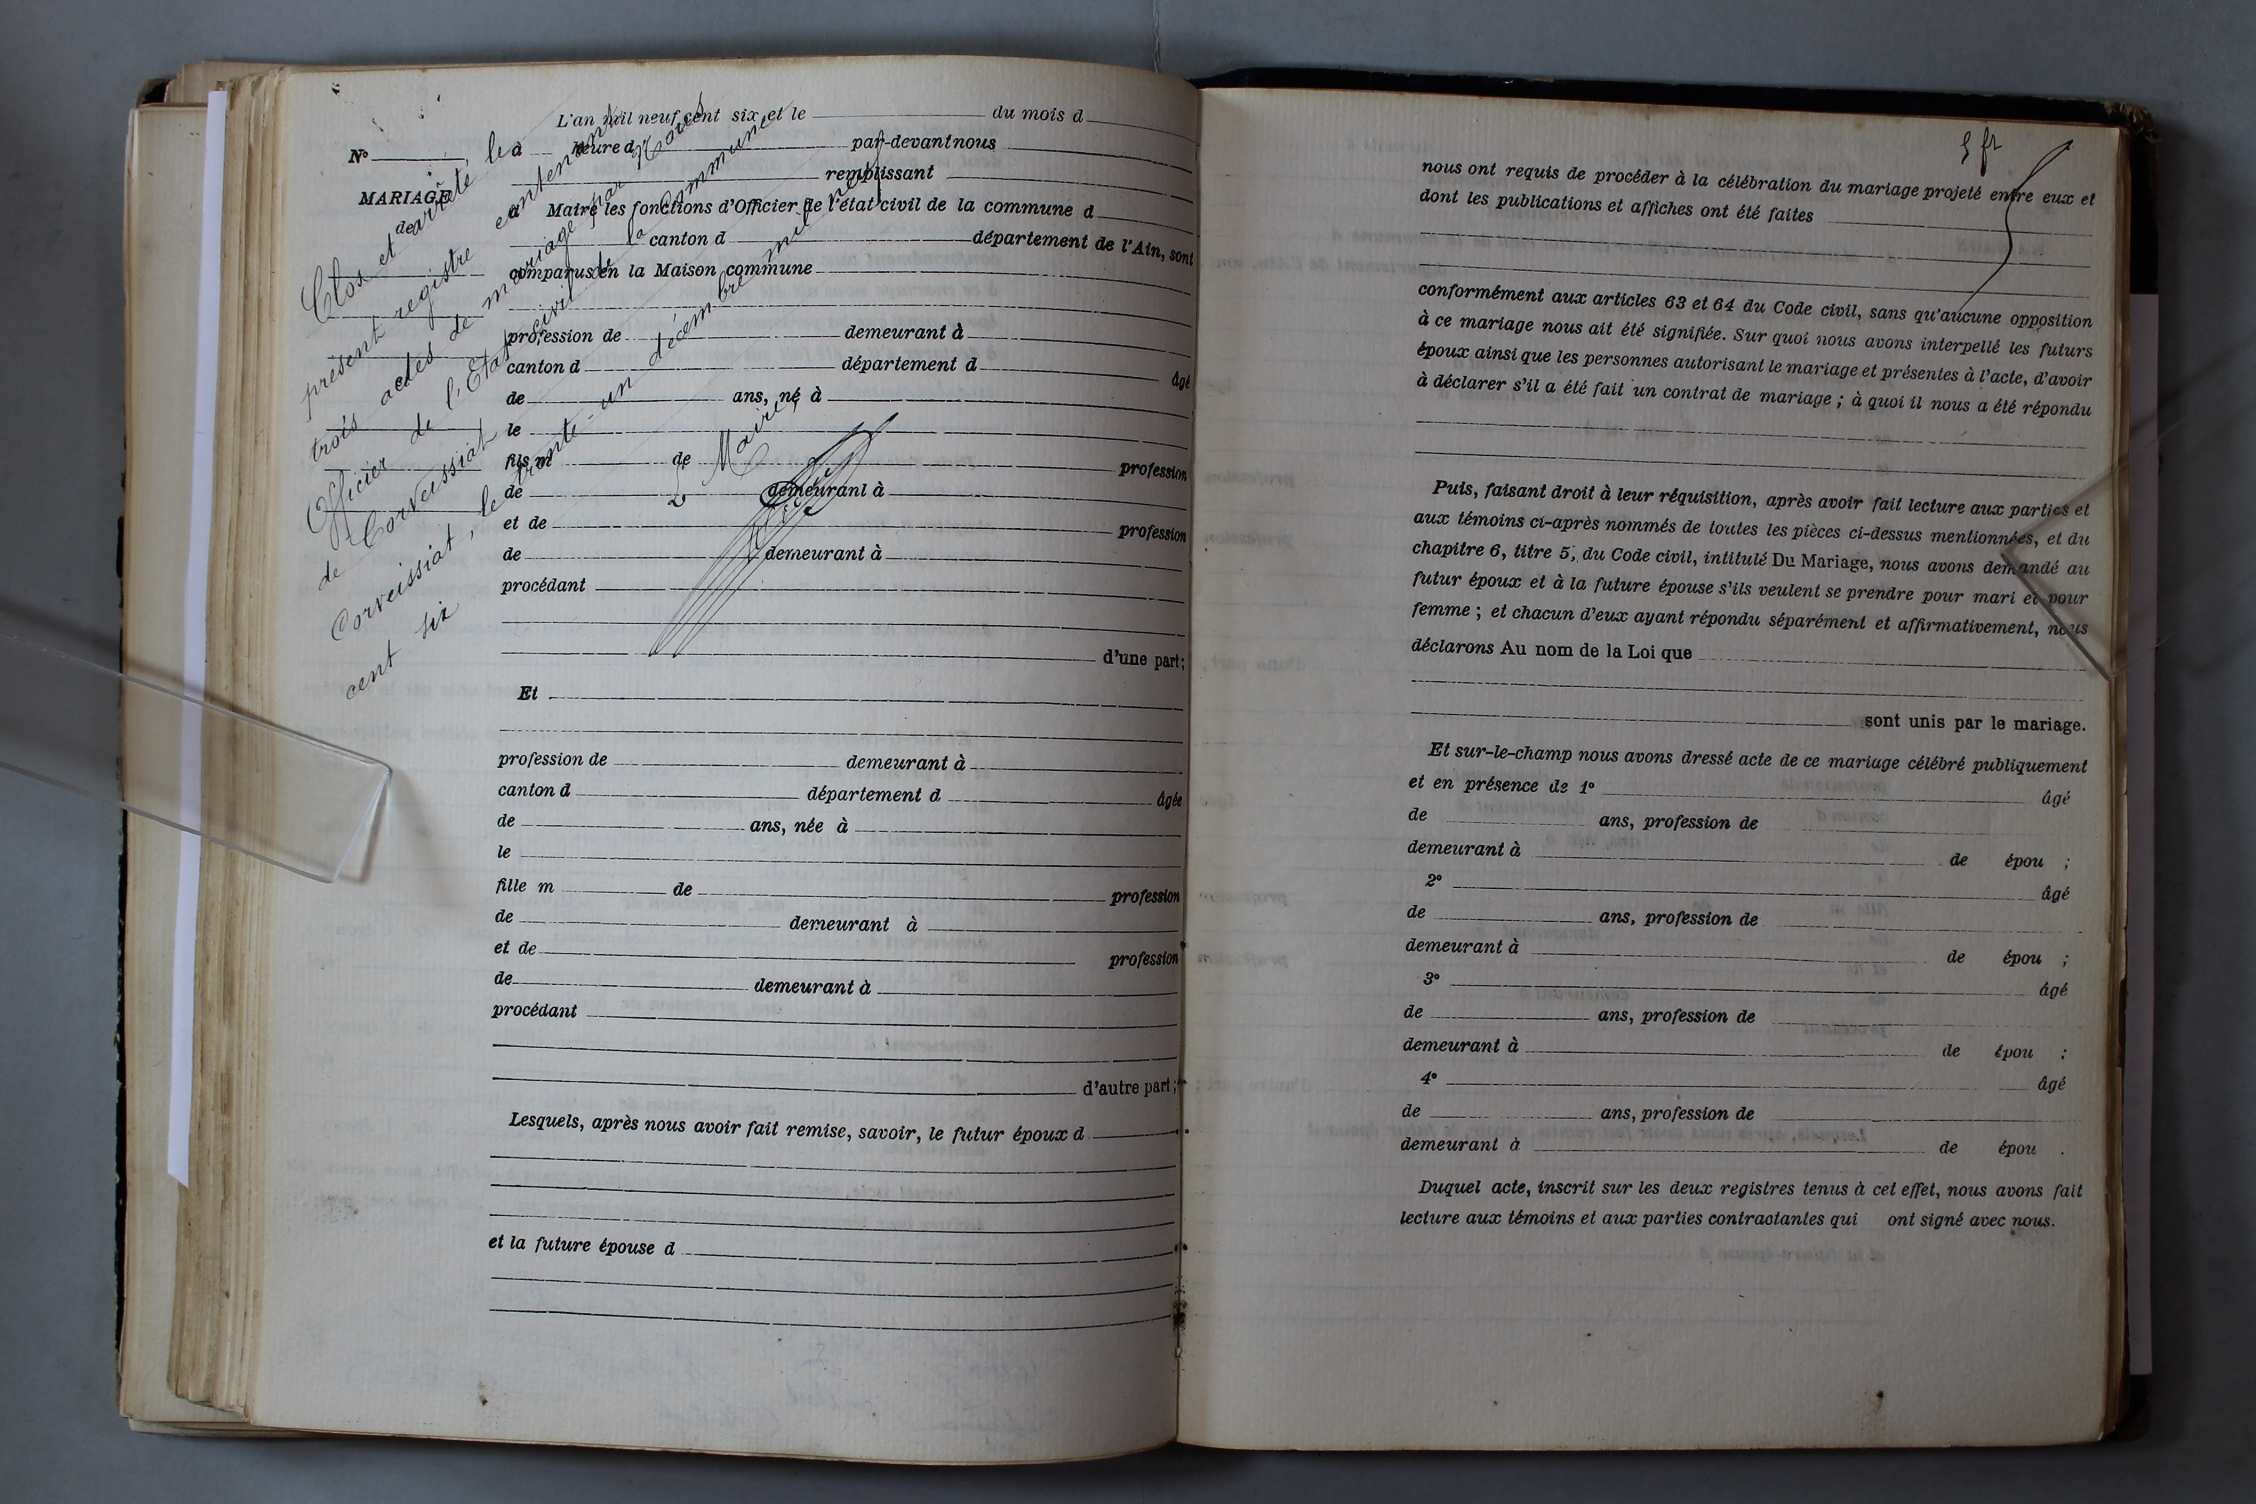 L'an mil neuf cent six et le du mois d
N° à heure d par-devant nous
remplissant
MARIAGE
d Maire les fonctions d'Officier de l'état civil de la commune d
canton d département de l'Ain, sont
comparus en la Maison commune
profession de demeurant à
canton d département d âgé
de ans, né à
le
fils m de profession
de demeurant à
et de profession
de demeurant à
procédant
d'une part;
Et
profession de demeurant à
canton d département d âgée
de ans, née à
le
fille m de profession
de demeurant à
et de profession
de demeurant à
procédant
d'autre part;
Lesquels, après nous avoir fait remise, savoir, le futur époux d
et la future épouse d
Clos et arrêté le
de
présent registre contenant
trois actes de mariage par Nous
Officier de l'Etat civil de la Commune
de Corveissiat
Corveissiat, le trente-un décembre mil neuf
cent six
Le Maire,
5 fr
nous ont requis de procéder à la célébration du mariage projeté entre eux et
dont les publications et affiches ont été faites
conformément aux articles 63 et 64 du Code civil, sans qu'aucune opposition
à ce mariage nous ait été signifiée. Sur quoi nous avons interpellé les futurs
époux ainsi que les personnes autorisant le mariage et présentes à l'acte, d'avoir
à déclarer s'il a été fait un contrat de mariage ; à quoi il nous a été répondu
Puis, faisant droit à leur réquisition, après avoir fait lecture aux parties et
aux témoins ci-après nommés de toutes les pièces ci-dessus mentionnées, et du
chapitre 6, titre 5, du Code civil, intitulé Du Mariage, nous avons demandé au
futur époux et à la future épouse s'ils veulent se prendre pour mari et pour
femme ; et chacun d'eux ayant répondu séparément et affirmativement, nous
déclarons Au nom de la Loi que
sont unis par le mariage.
Et sur-le-champ nous avons dressé acte de ce mariage célébré publiquement
et en présence de 1° âgé
de ans, profession de
demeurant à de épou ;
2° âgé
de ans, profession de
demeurant à de épou ;
3° âgé
de ans, profession de
demeurant à de épou ;
4° âgé
de ans, profession de
demeurant à de épou .
Duquel acte, inscrit sur les deux registres tenus à cet effet, nous avons fait
lecture aux témoins et aux parties contractantes qui ont signé avec nous.